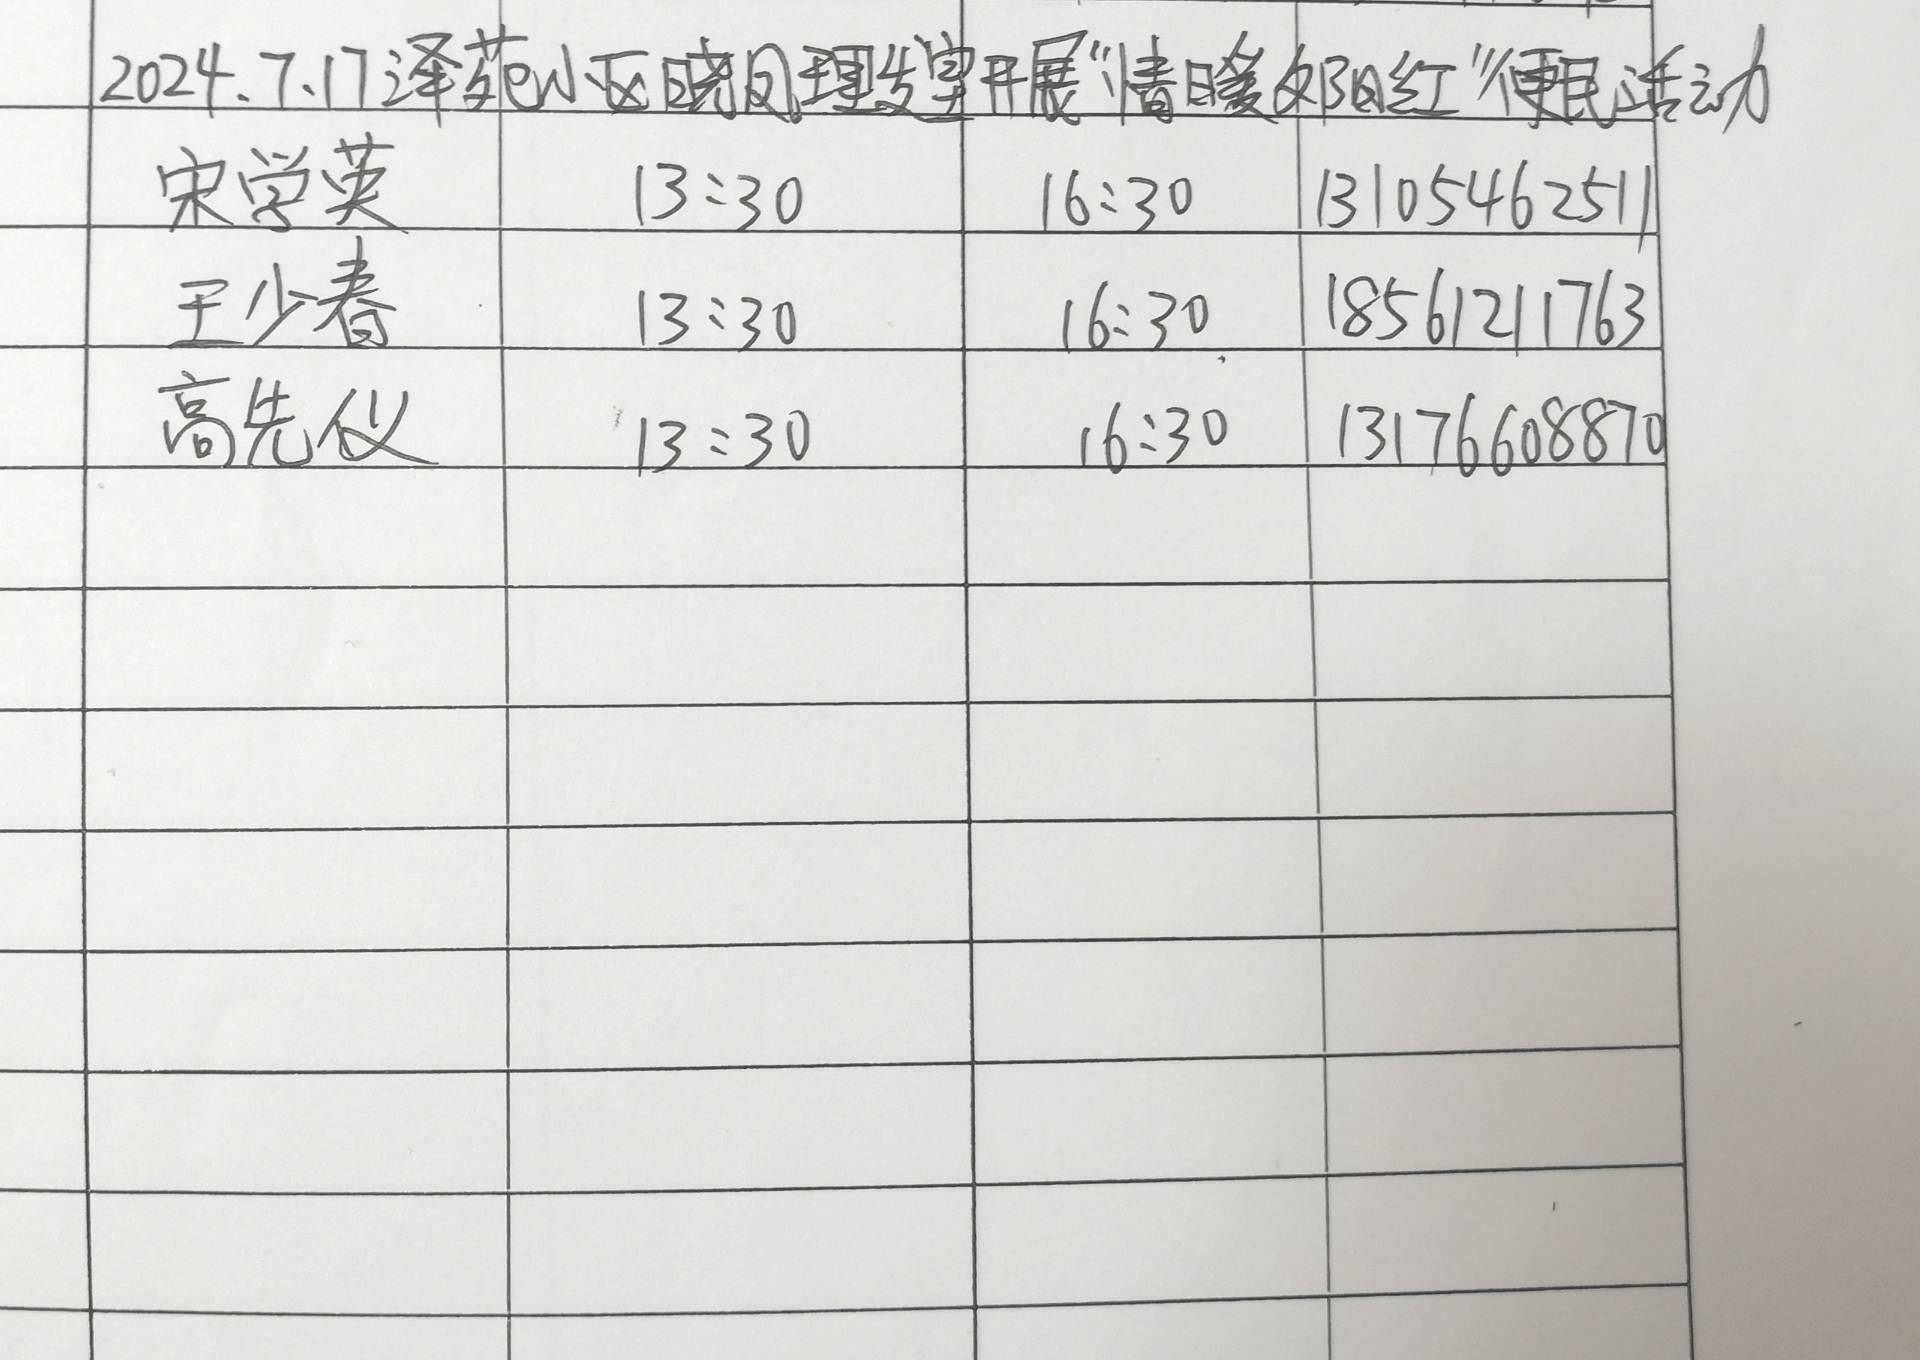 2024.7.17泽苑小区晓风理发室开展“情暖夕阳红”便民活动
宋学英 13:30 16:30 13105462511
王少春 13:30 16:30 18561211763
高先仪 13:30 16:30 13176608870